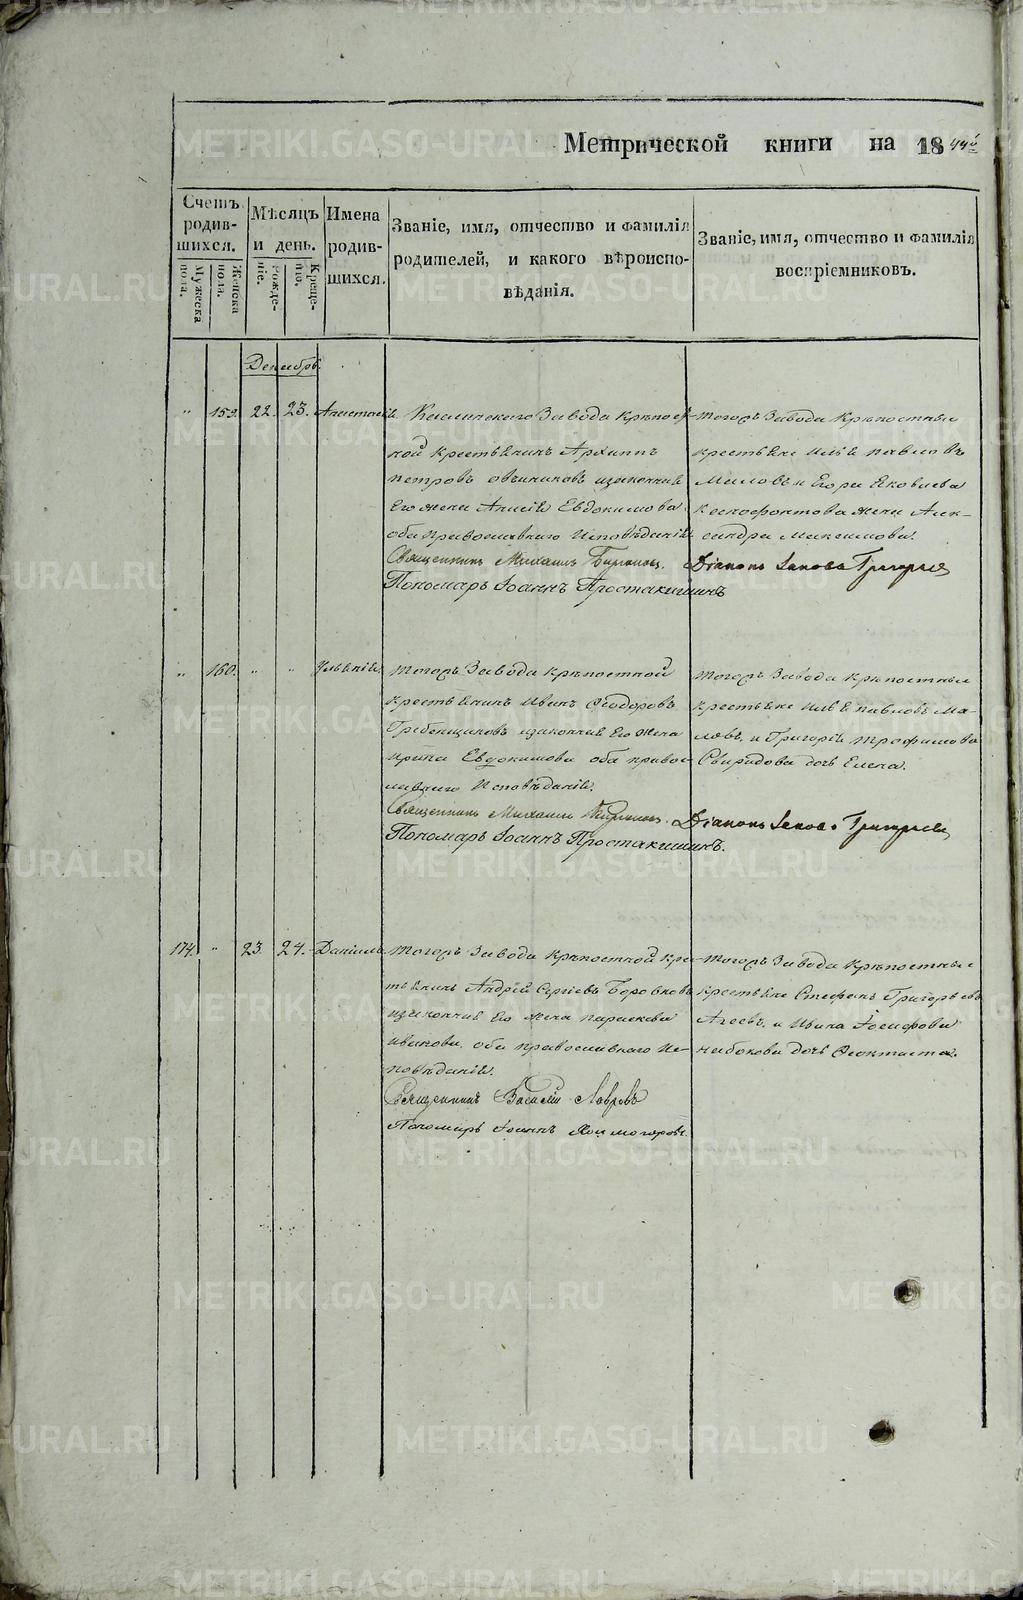 Метрической книги на 1844й
Счетъ родив-шихся.
Мужеска пола.
Женска пола.
Мѣсяцъ и день.
Рожде-ніе.
Креще-нію.
Имена родив-шихся.
Званіе, имя, отчество и фамилія
родителей, и какого вѣроиспо-
вѣданія.
Званіе, имя, отчество и фамилія
воспріемниковъ.
Декабрь.
" 159. 22. 23. Анастасія.
Каслинскаго Завода Крѣпост-
ной крестьянинъ Архиппъ
петровъ
Его жена Евдокимова
оба православнаго Исповѣданія.
Священникъ Михаилъ
Пономарь Іоаннъ Простакишинъ
Тогожъ Завода Крѣпостные
крестьяне Илья павловъ
Маловъ и Егора Яковлева
Ксенофонтова жена Алек-
сандра Максимова.
Діаконъ Іаковъ Григорьев
" 160. " " Ульянія.
Тогожъ Завода крѣпостной
крестьянинъ Иванъ Ѳеодоровъ
Гребенщиковъ и законная Его жена
ирина Евдокимова оба право-
славнаго Исповѣданія.
Священникъ Михаилъ
Пономарь Іоаннъ Простакишинъ.
Тогожъ Завода Крѣпостные
крестьяне Илья павловъ Ма-
ловъ, и Григорія трофимова
Свиридова дочь Елена.
Діаконъ Іаковъ Григорьев
174. " 23. 24. Даніилъ
Тогожъ Завода Крѣпостной кре-
стьянинъ Андрей Сергіевъ Боровковъ
и законная Его жена параскева
иванова, оба православнаго Ис-
повѣданія.
Священникъ Василій Лавровъ
Пономарь Іоаннъ Холмогоровъ.
Тогожъ Завода Крѣпостные
крестьяне Стефанъ Григорьевъ
Агеевъ, и Ивана Іосифова
дочь Ѳеоктиста.
METRIKI.GASO-URAL.RU